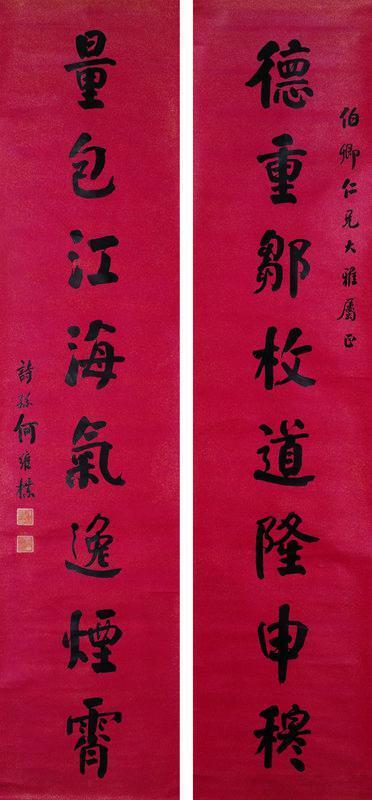 伯卿仁兄大雅属正
德重鄒枚道隆申穆
量包江海氣逸煙霄
詩孫何維樸